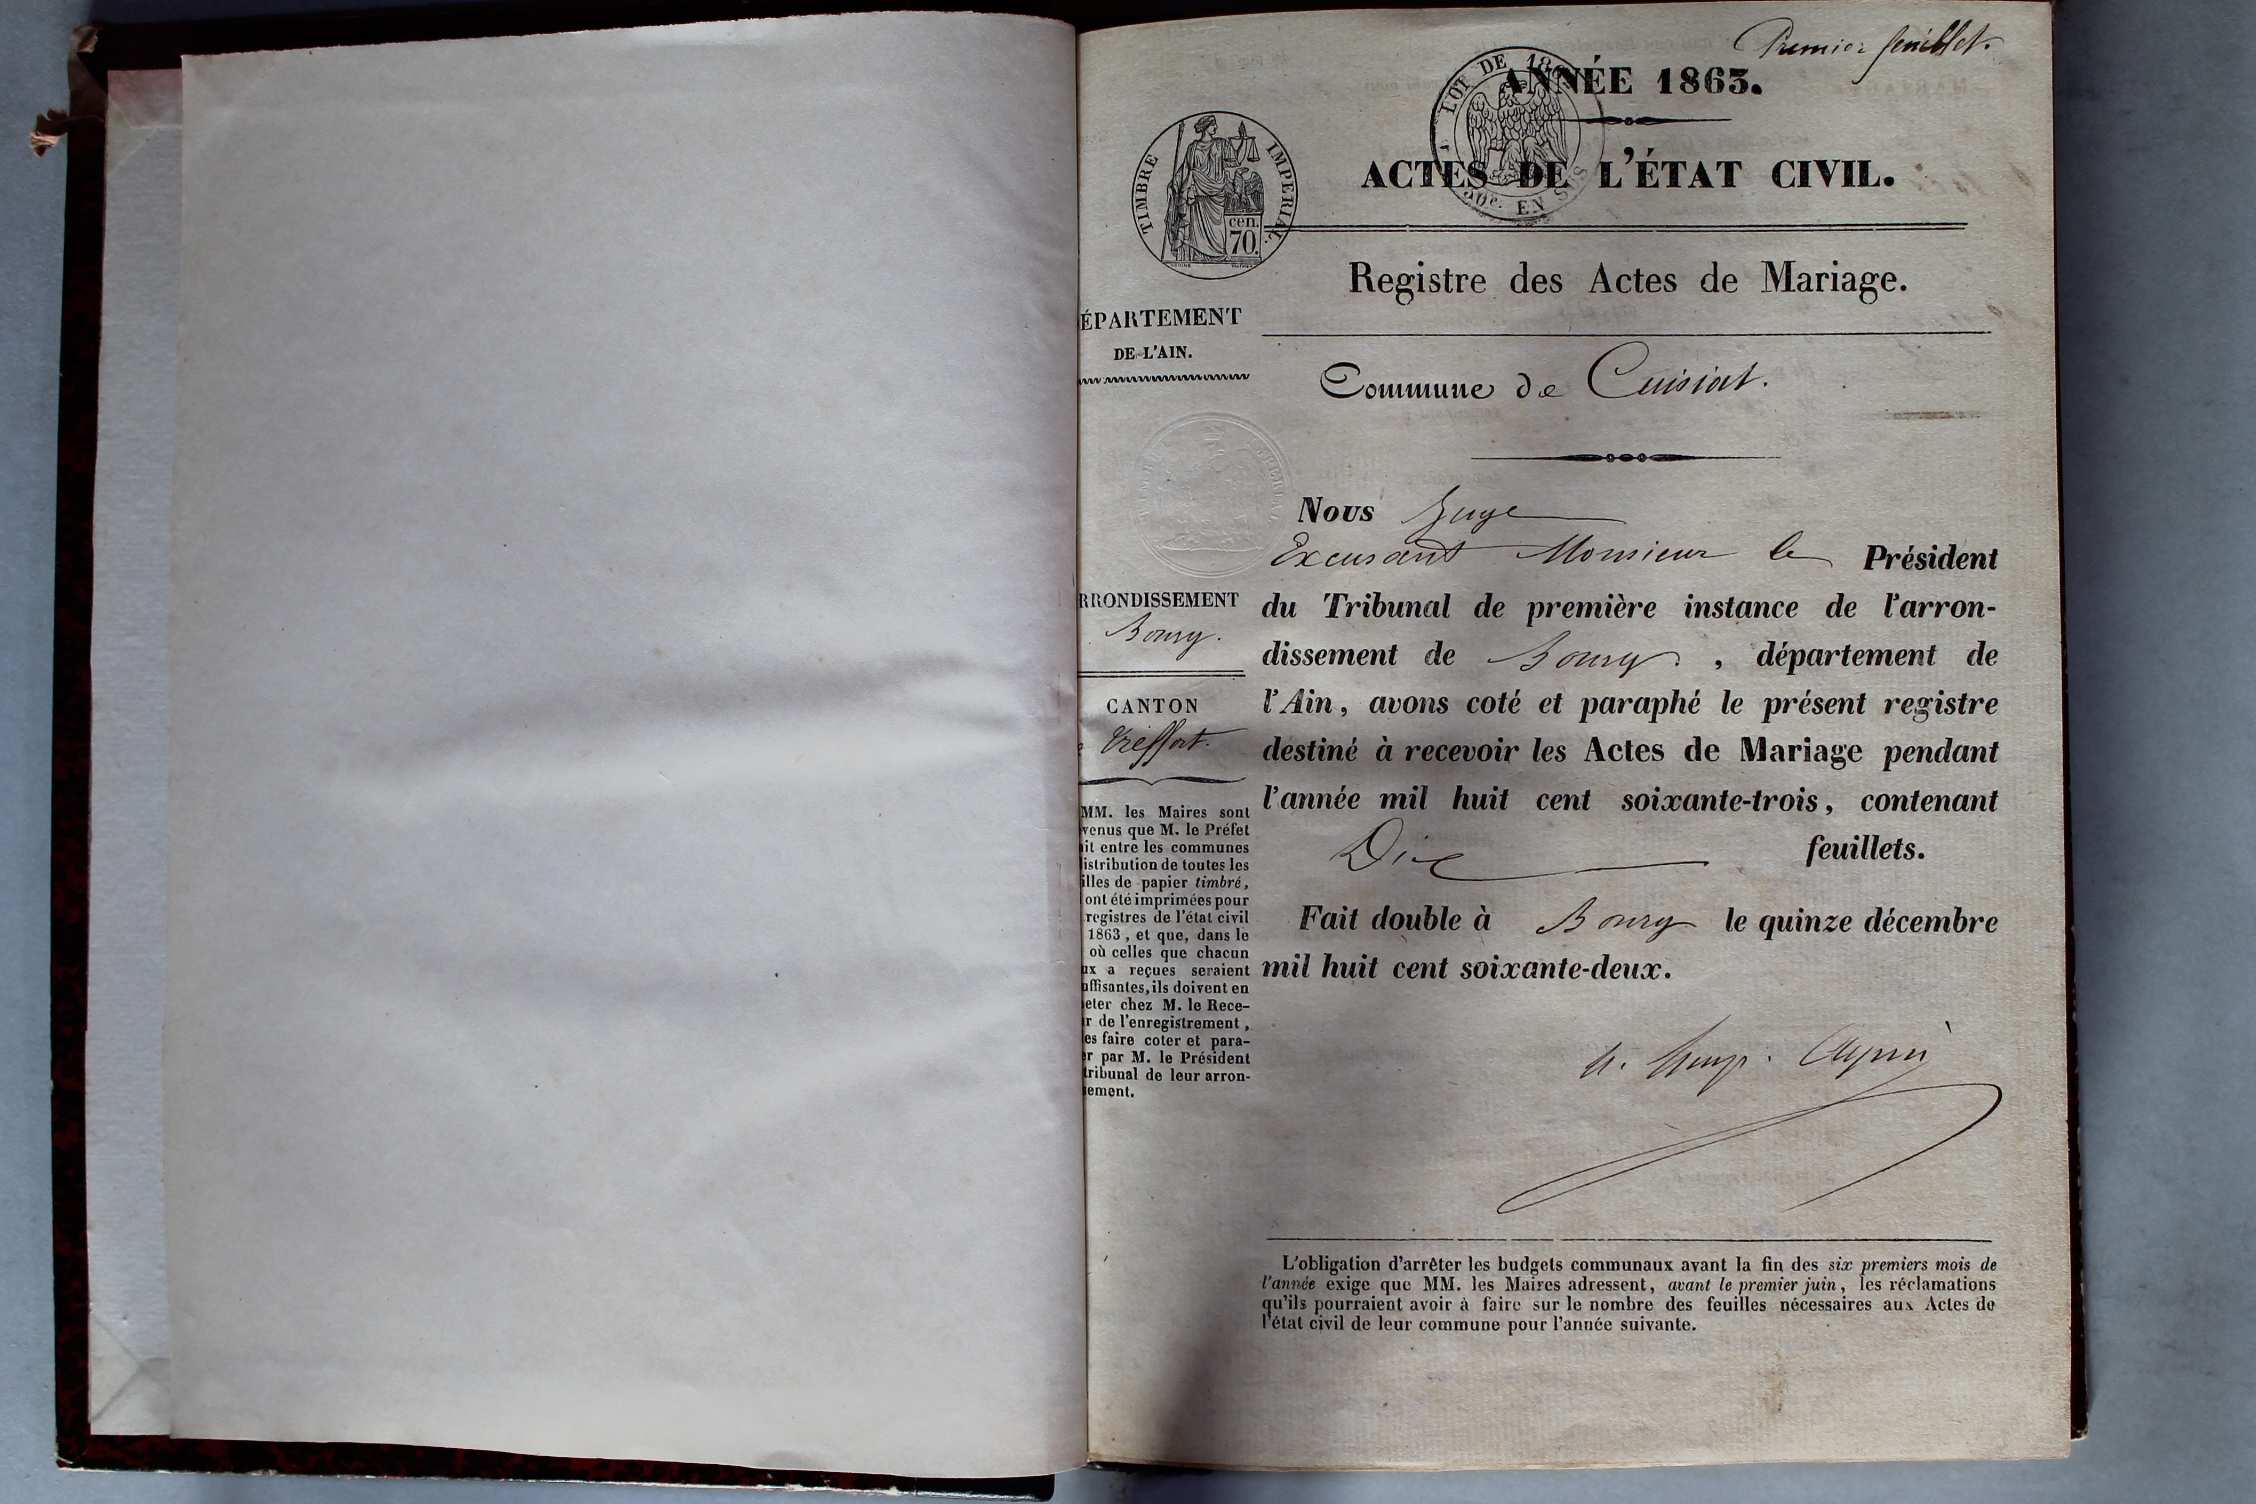 Premier feuillet.
ANNÉE 1863.
LOT DE 186
50c. EN SUS
TIMBRE IMPÉRIAL.
cen.
70.
ACTES DE L'ÉTAT CIVIL.
Registre des Actes de Mariage.
ÉPARTEMENT
DE L'AIN.
Commune de Cuisiat.
Nous Juge
Excusant Monsieur le Président
du Tribunal de première instance de l'arron-
dissement de Bourg, département de
l'Ain, avons coté et paraphé le présent registre
destiné à recevoir les Actes de Mariage pendant
l'année mil huit cent soixante-trois, contenant
Dix feuillets.
Fait double à Bourg le quinze décembre
mil huit cent soixante-deux.
RRONDISSEMENT
Bourg.
CANTON
Treffort.
MM. les Maires sont
venus que M. le Préfet
it entre les communes
istribution de toutes les
illes de papier timbré,
ont été imprimées pour
registres de l'état civil
1863, et que, dans le
où celles que chacun
ux a reçues seraient
uffisantes, ils doivent en
eter chez M. le Rece-
r de l'enregistrement,
es faire coter et para-
er par M. le Président
tribunal de leur arron-
sement.
L'obligation d'arrêter les budgets communaux avant la fin des six premiers mois de
l'année exige que MM. les Maires adressent, avant le premier juin, les réclamations
qu'ils pourraient avoir à faire sur le nombre des feuilles nécessaires aux Actes de
l'état civil de leur commune pour l'année suivante.